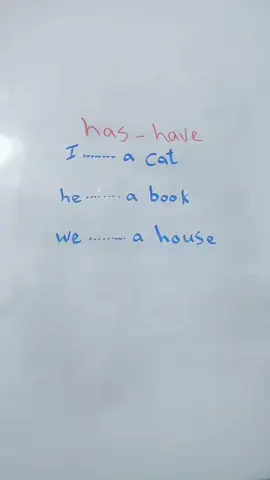 has - have
I ........ a cat
he ........ a book
we ......... a house